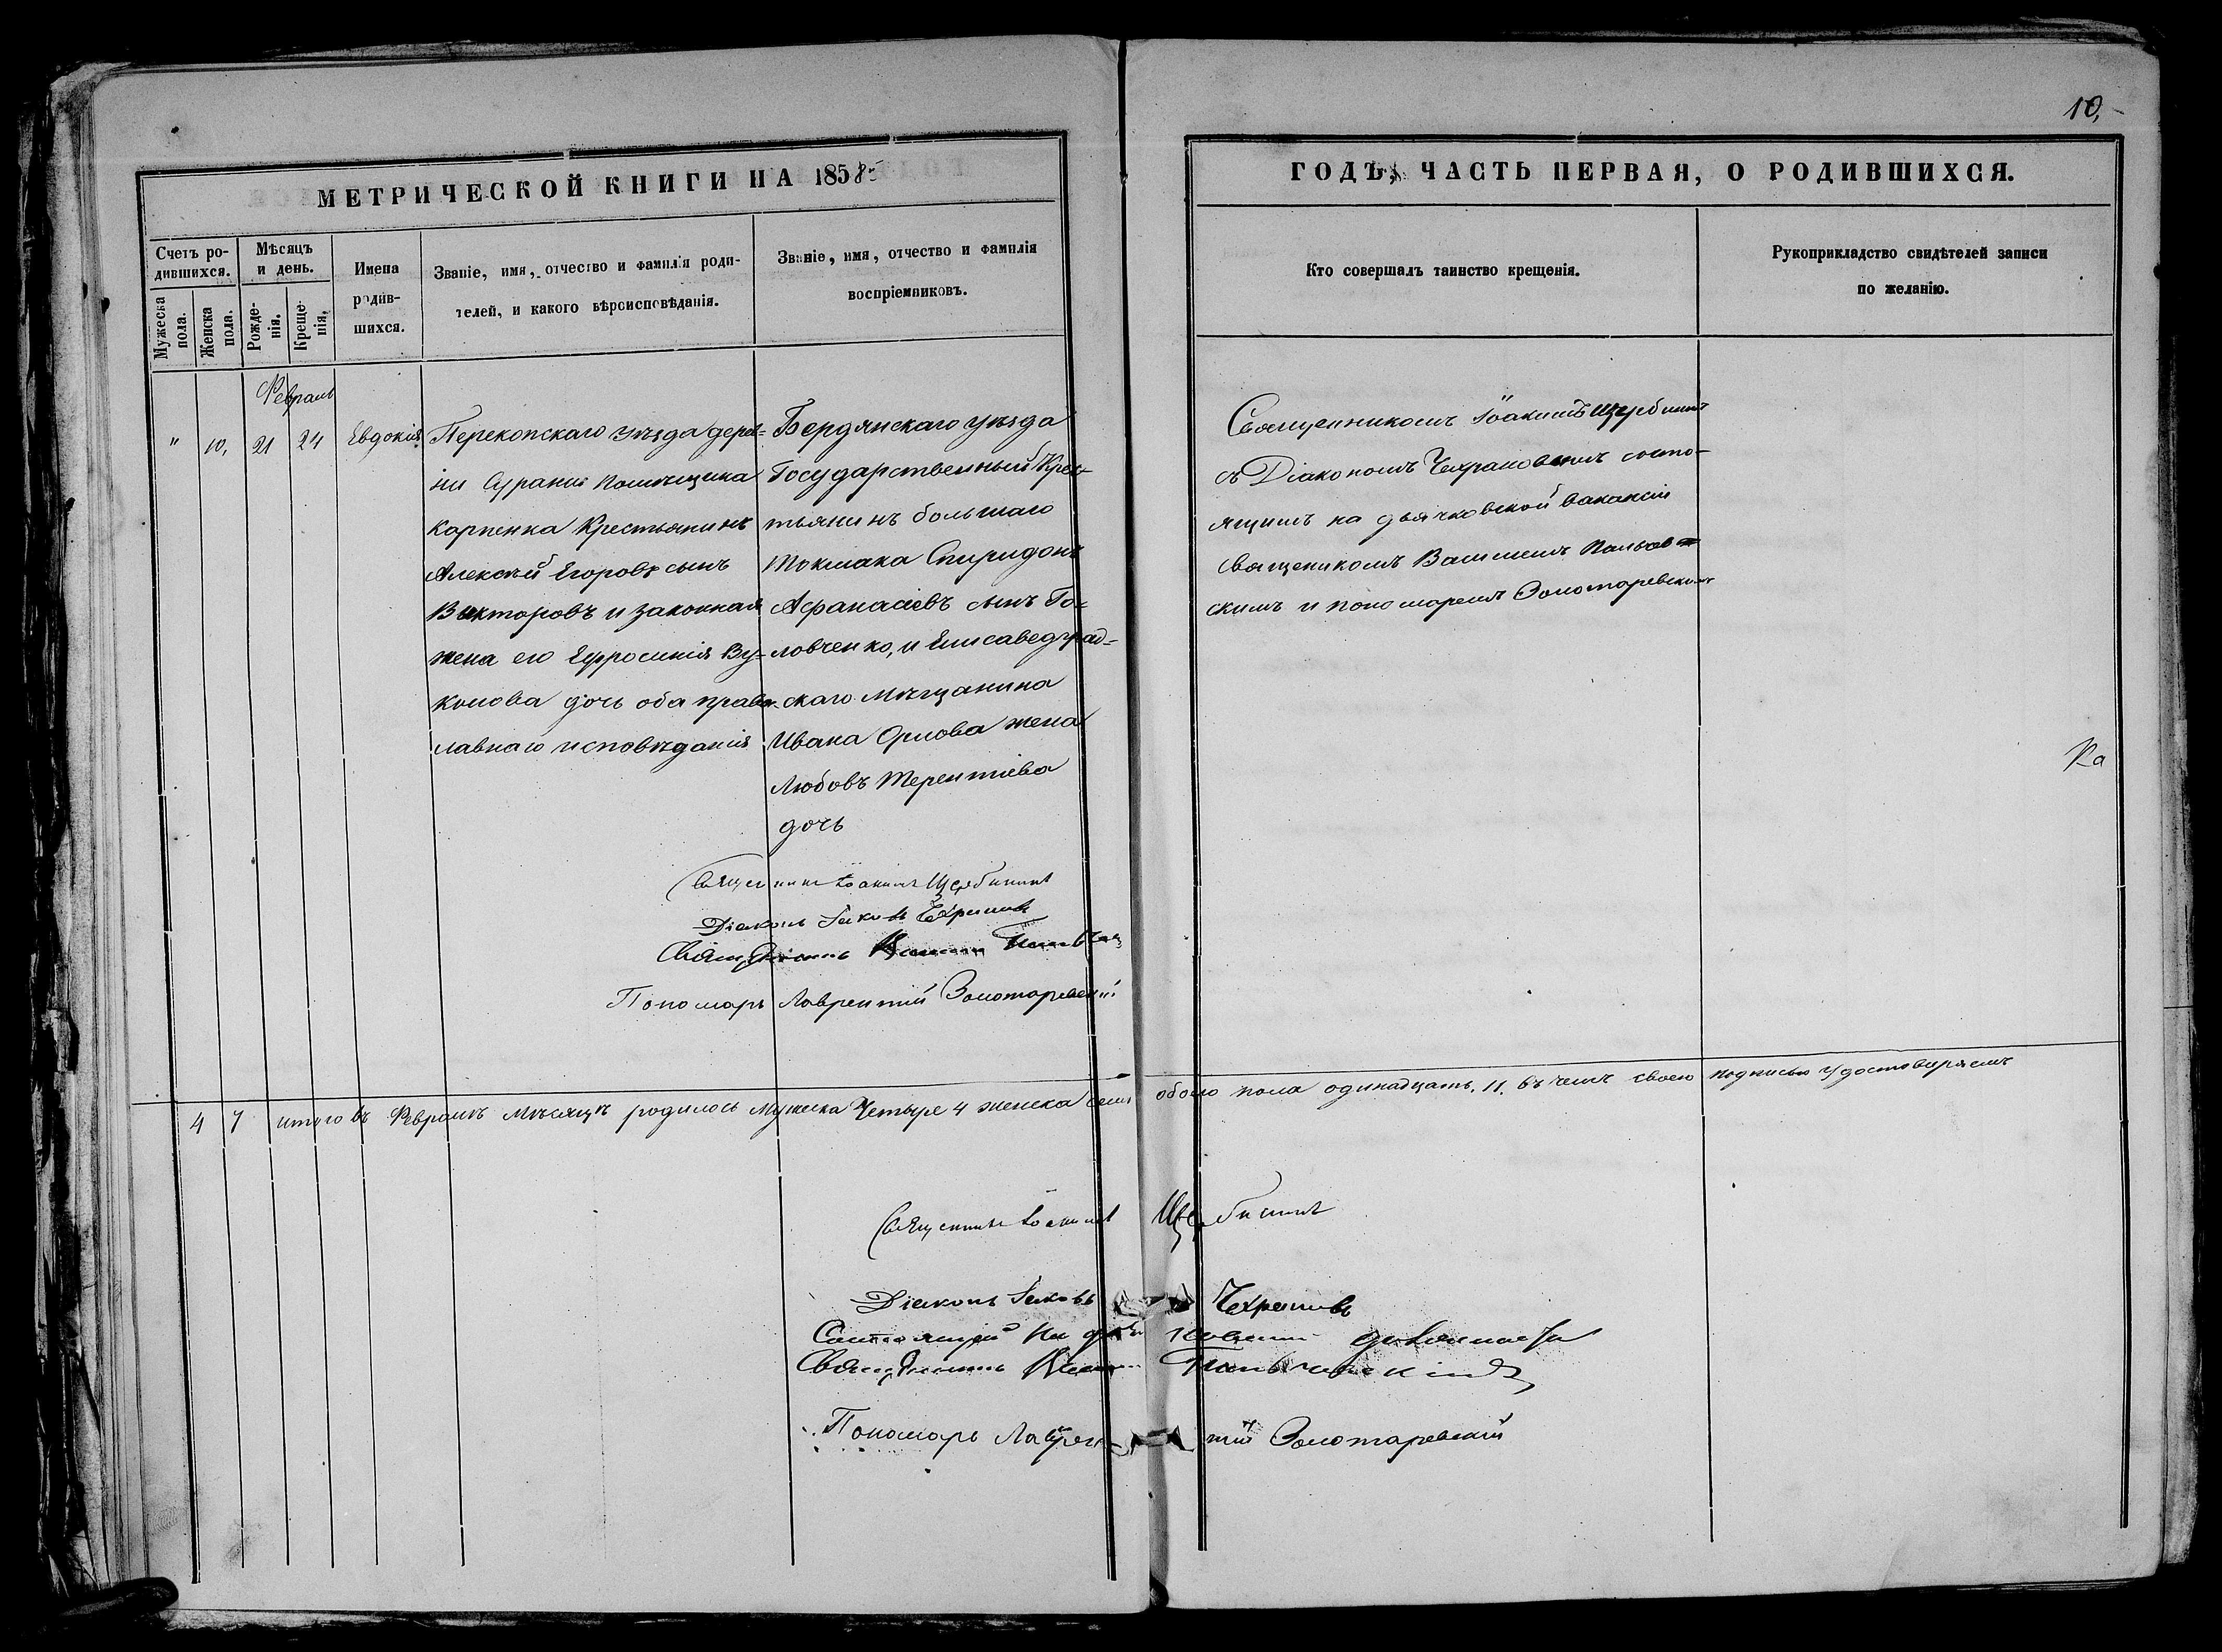 10,
МЕТРИЧЕСКОЙ КНИГИ НА 1858
ГОДЪ, ЧАСТЬ ПЕРВАЯ, О РОДИВШИХСЯ.
Счетъ ро-
дившихся.
Мужеска
пола.
Женска
пола.
Мѣсяцъ
и день.
Рожде-
нія.
Креще-
нія.
Имена
родив-
шихся.
Званіе, имя, отчество и фамилія роди-
телей, и какого вѣроисповѣданія.
Званіе, имя, отчество и фамилія
воспріемниковъ.
Кто совершалъ таинство крещенія.
Рукоприкладство свидѣтелей записи
по желанію.
Февраль
" 10, 21 24 Евдокія
Перекопскаго уѣзда дерев-
ни Сурании помѣщика
Карпенка Крестьянинъ
Алексѣй Егоровъ сынъ
Викторовъ и законная
жена его Ефросинія Ву-
колова дочь оба право-
лавнаго исповѣданія
Бердянскаго уѣзда
Государственный Крес-
тьянинъ большаго
Токмака Спиридонъ
Афанасіевъ сынъ Го-
ловченко, и Елисаведград-
скаго Мѣщанина
Ивана Орлова жена
Любовъ Терентіева
дочь
Священникомъ Іоакимъ Щербининъ
съ Діакономъ Чехрановымъ состо-
ящимъ на дьячковской вакансіи
священикомъ
скимъ и пономаремъ Золотаревскимъ
Ка
Священникъ Іоакимъ Щербининъ
Діаконъ Іаковъ Чехрановъ
Священникъ
Пономарь Лаврентій Золотаревскій
4 7 итого въ Февралѣ Мѣсяцѣ родилось Мужеска Четыре 4 женска семь обоего пола одинадцать. 11. въ чемъ своею подписью удостоверяемъ
Священникъ Іоакимъ Щербининъ
Діаконъ Іаковъ Чехрановъ
Состоящій на
Священникъ
Пономарь Лаврентій Золотаревскій